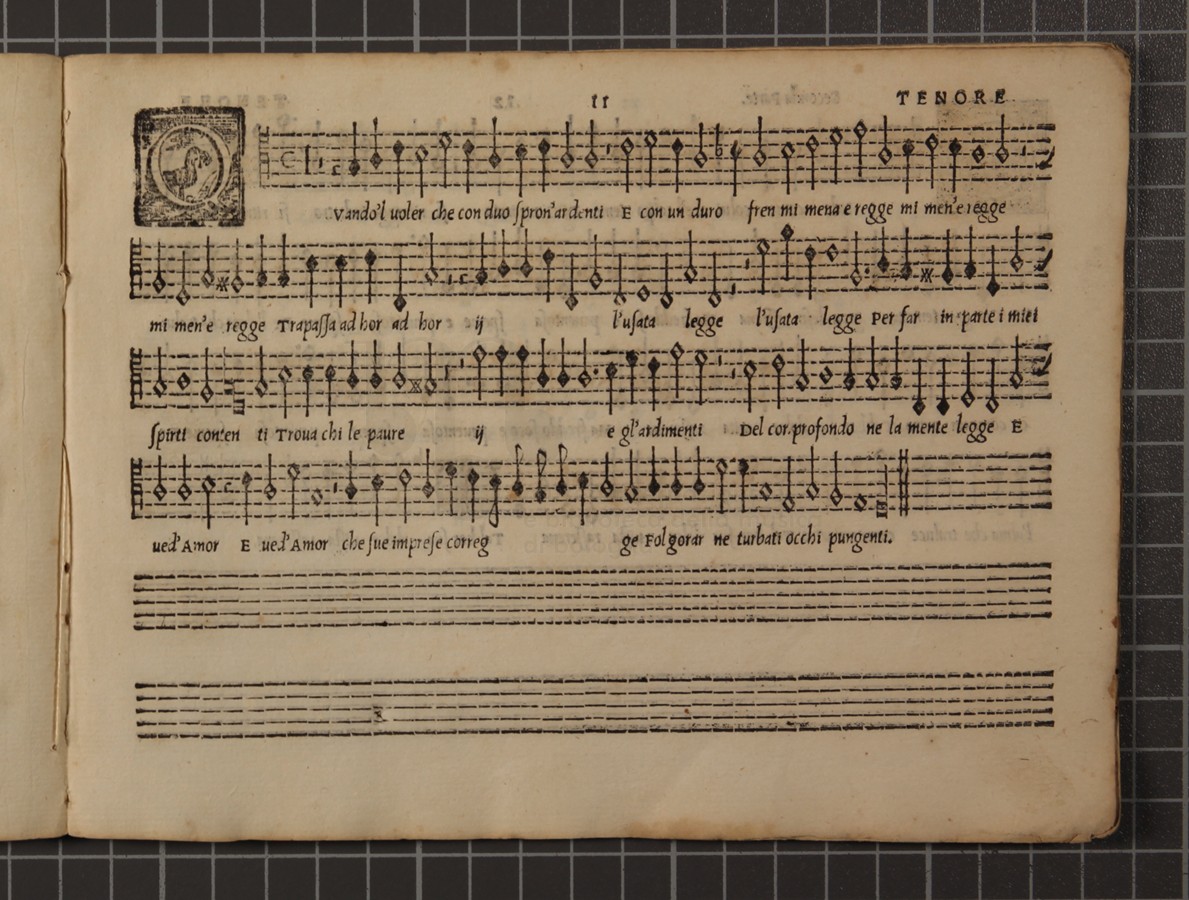 11 TENORE
Vando'l uoler che con duo spron'ardenti E con un duro fren mi mena e regge mi men'e regge
mi men'e regge Trapassa ad hor ad hor ij l'usata legge l'usata legge Per far in parte i miei
spirti conten ti Troua chi le paure ij e gl'ardimenti Del cor profondo ne la mente legge E
ued'Amor E ued'Amor che sue imprese correg ge Folgorar ne turbati occhi pungenti.